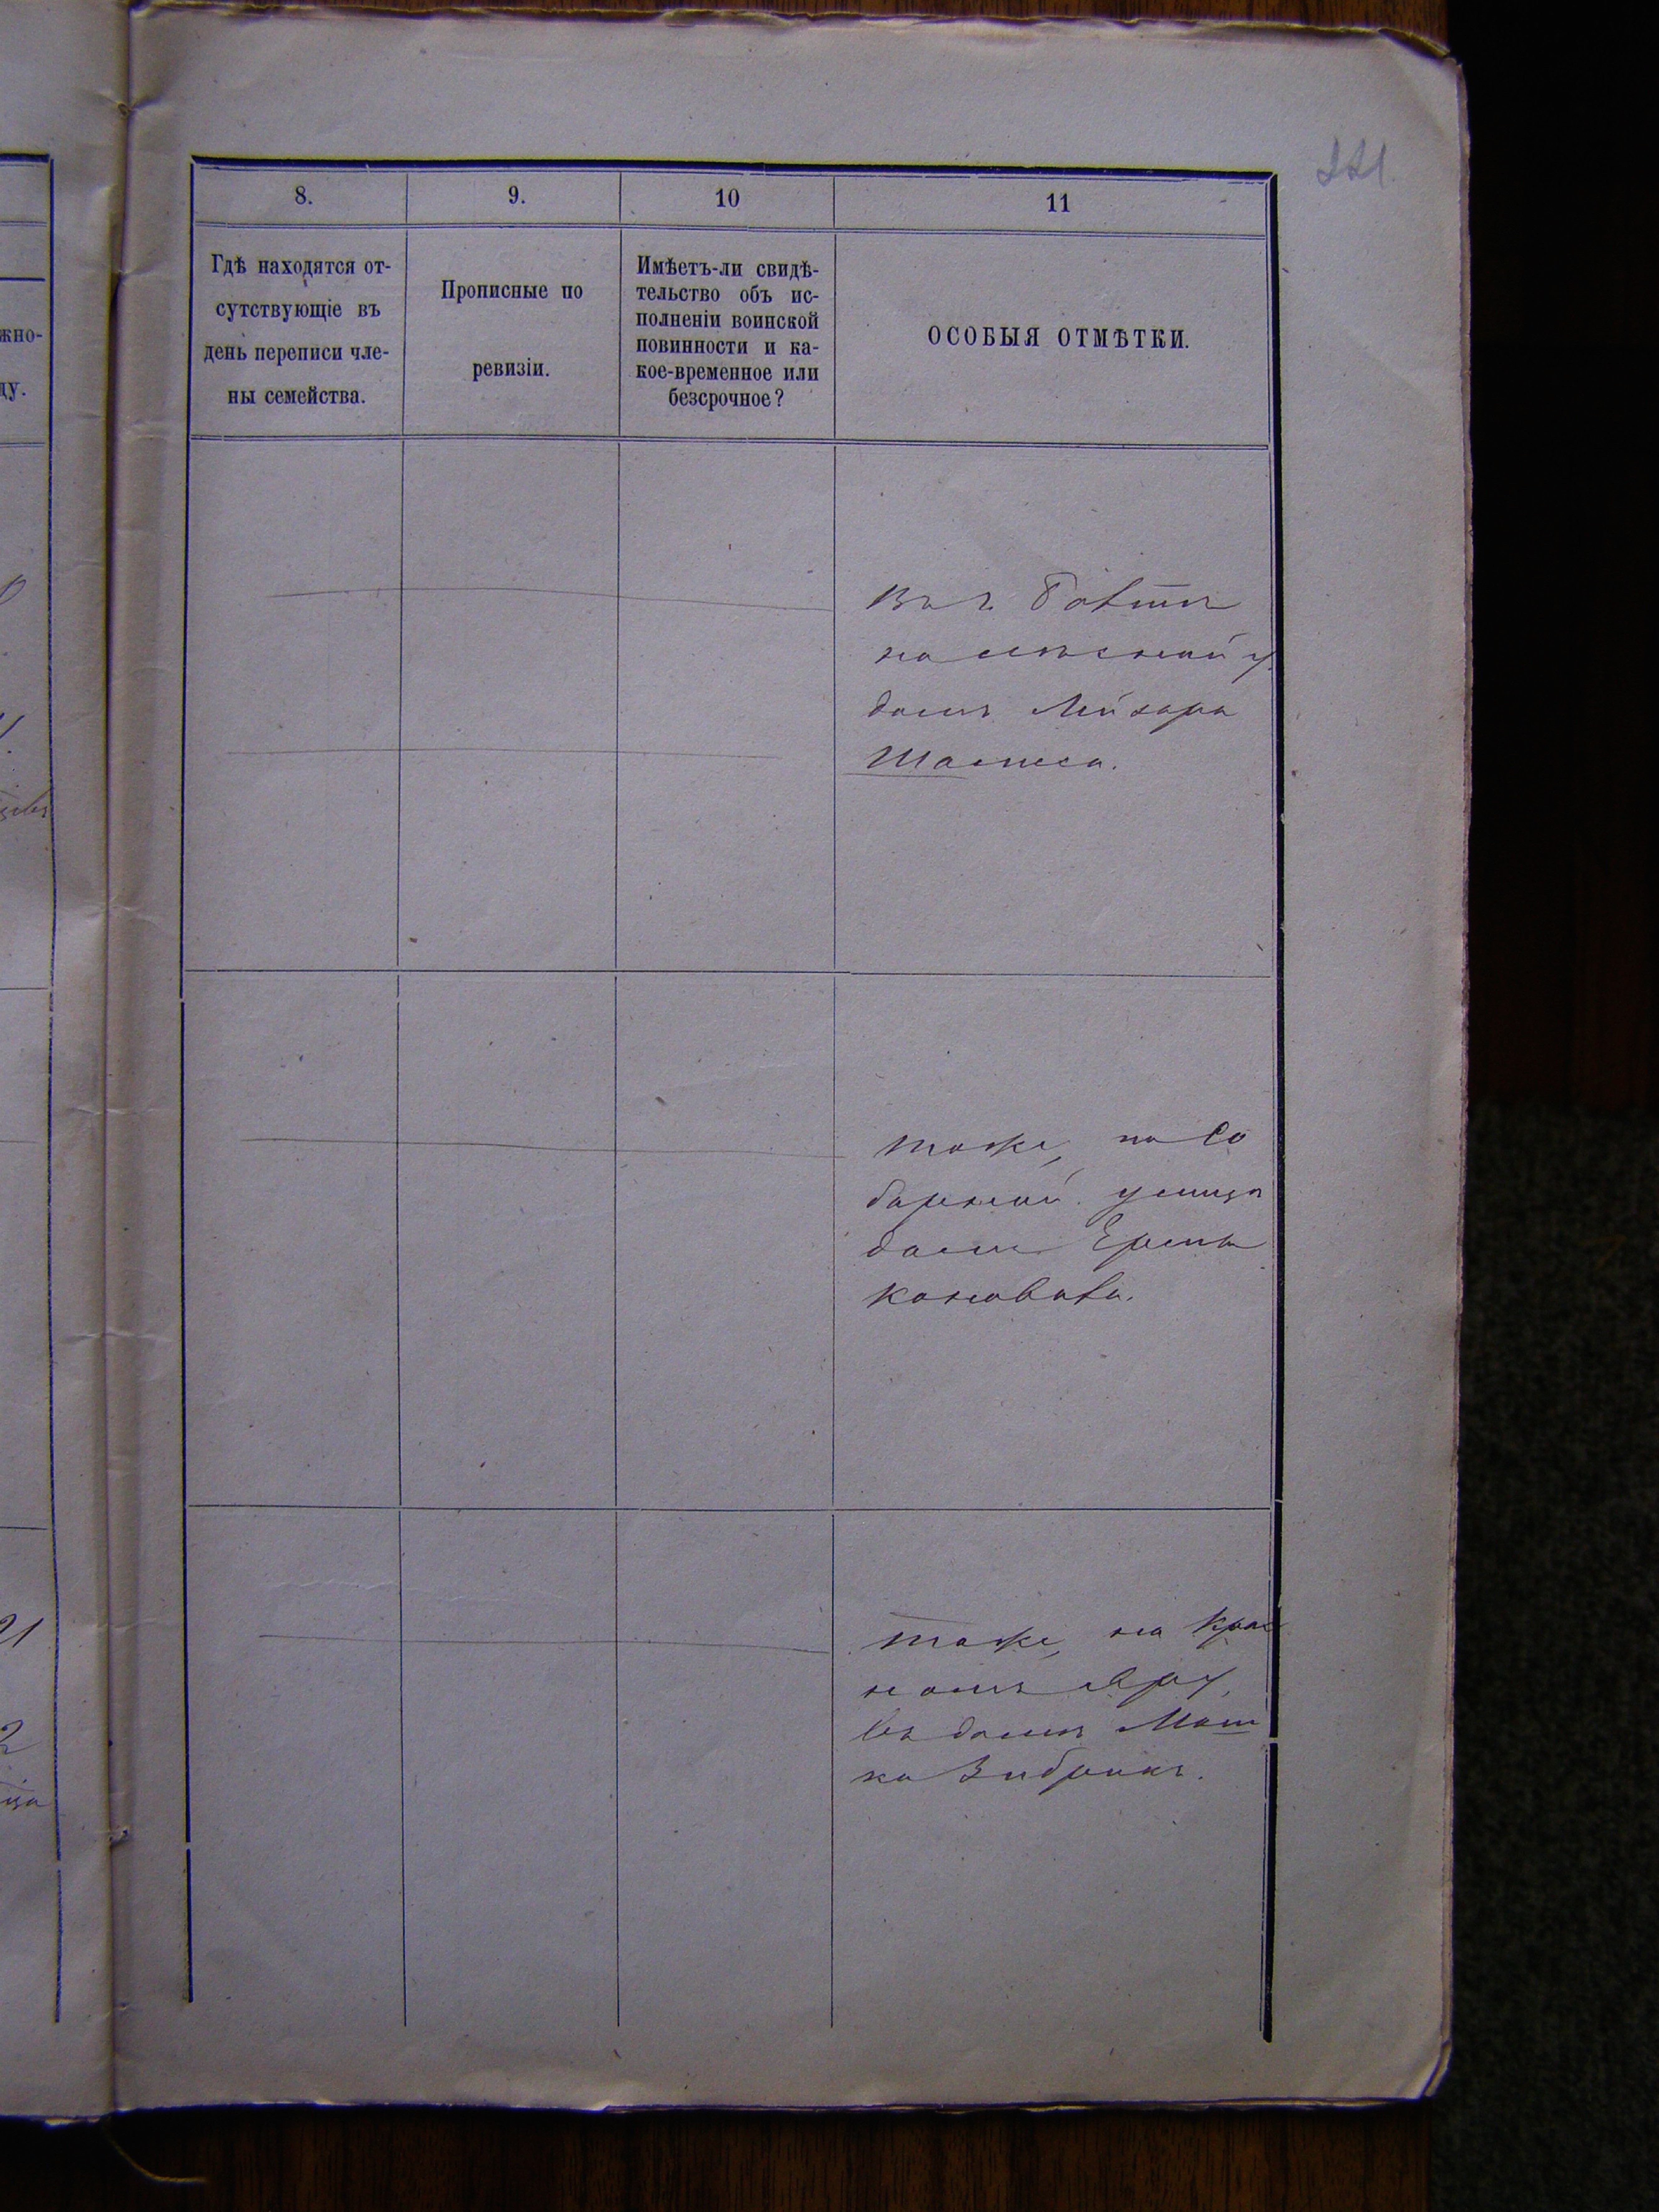 221.
8.
9.
10
11
Гдѣ находятся от-
сутствующіе въ
день переписи чле-
ны семейства.
Прописные по
ревизіи.
Имѣетъ-ли свидѣ-
тельство объ ис-
полненіи воинской
повинности и ка-
кое-временное или
безсрочное?
ОСОБЫЯ ОТМѢТКИ.
жно-
ду.
Въ г.
на у.
домъ Лейзера
тоже, на Со
борной улицѣ
домъ
Коновова.
тоже, на Крас
номъ яру,
въ домѣ Мош
ка
21
2